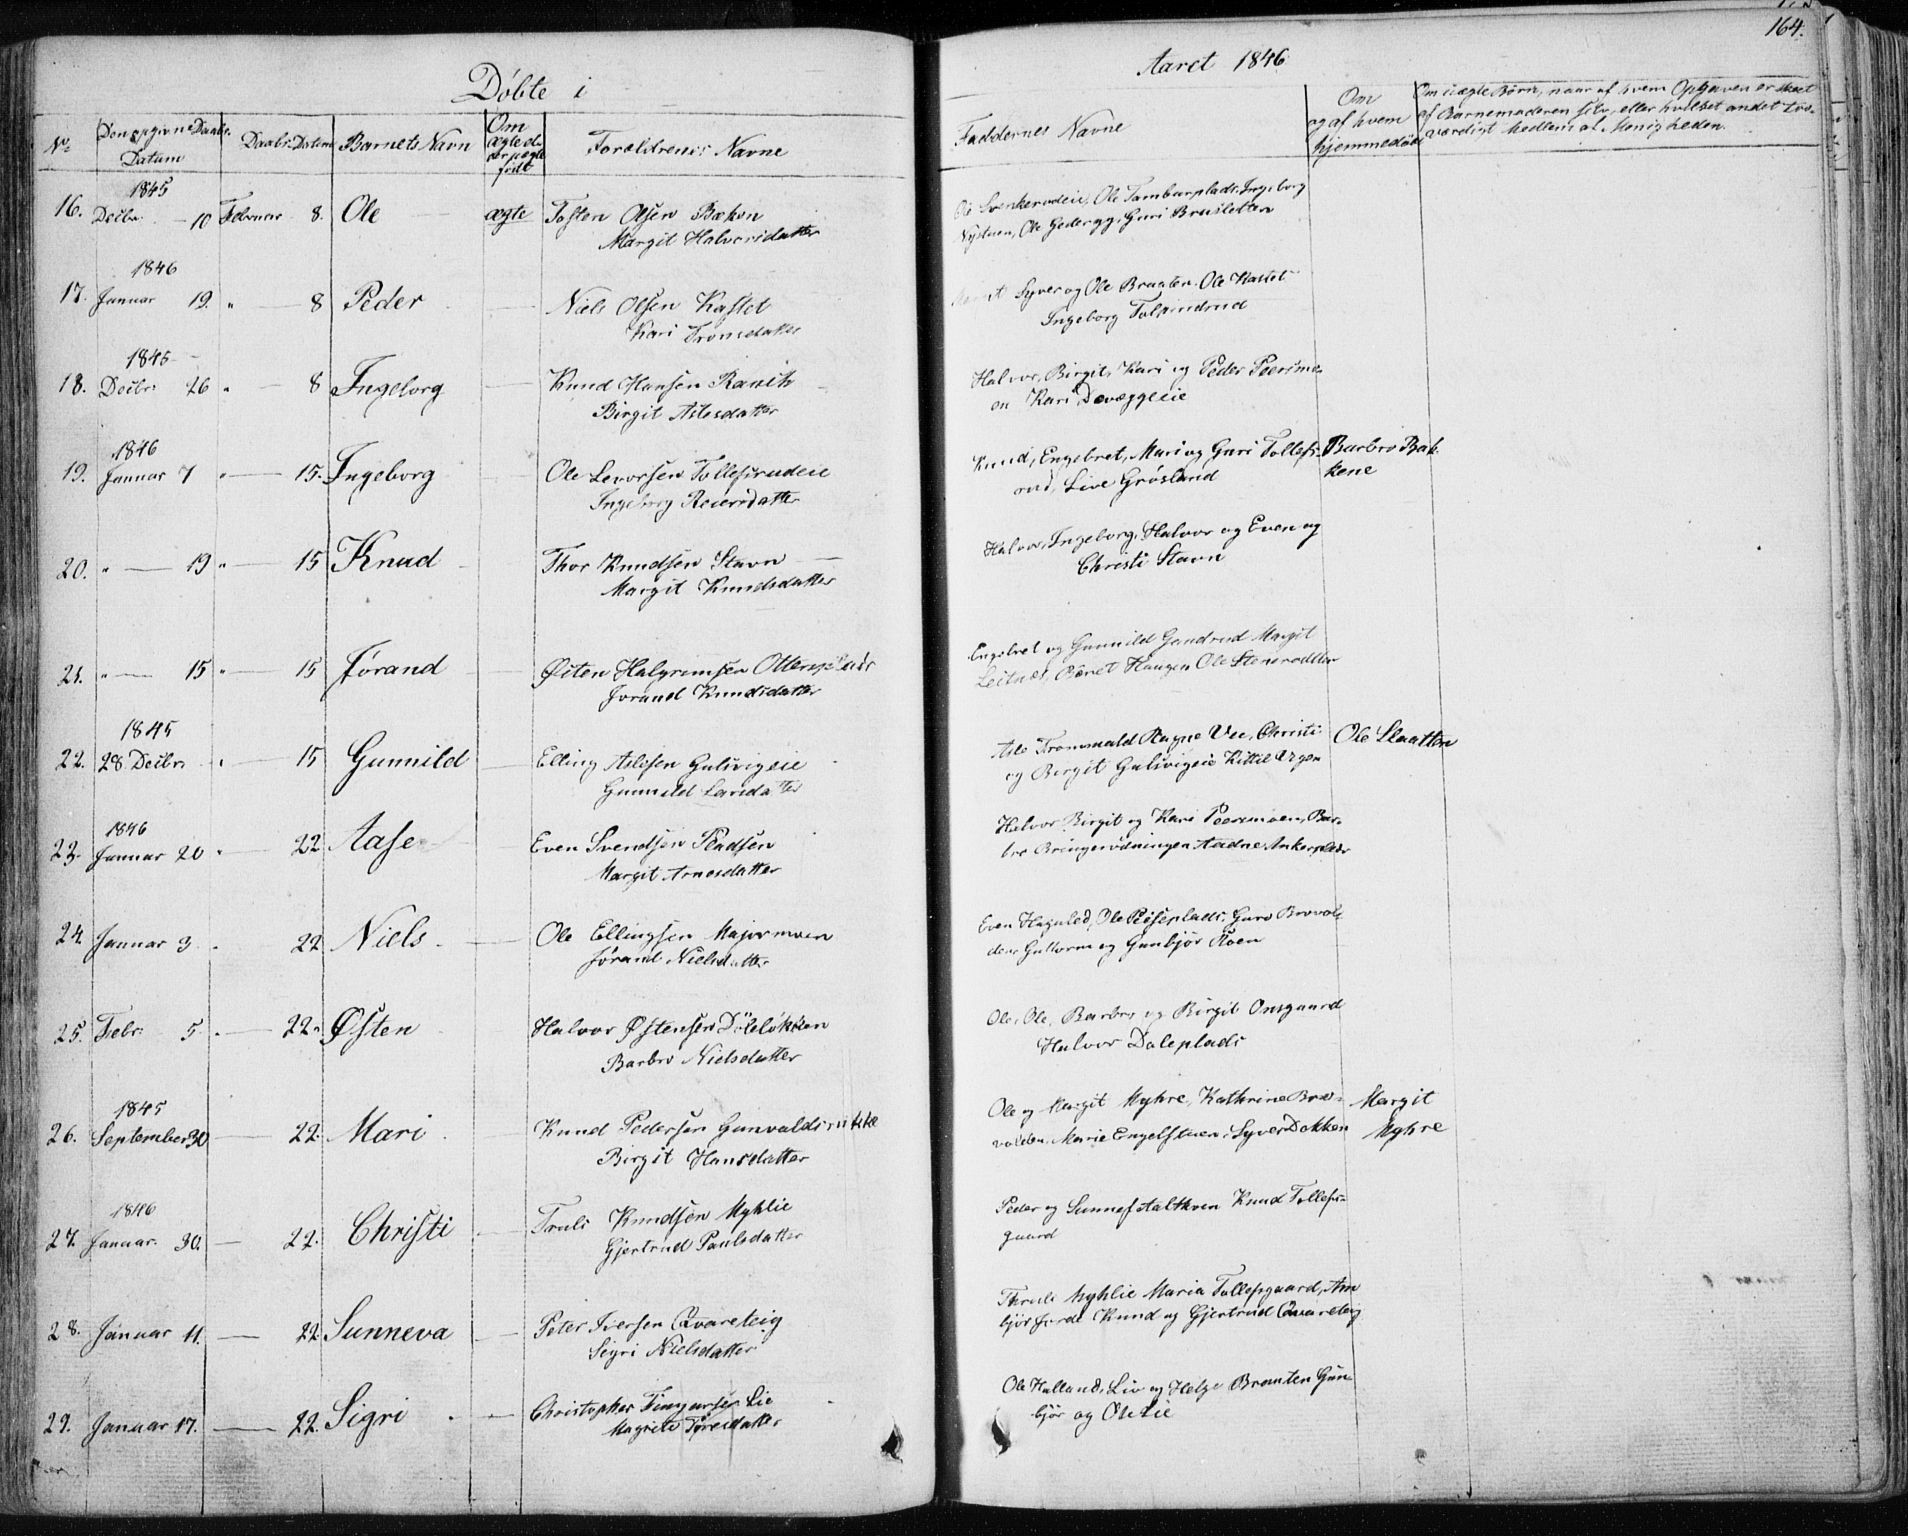 164.
Døbte i
Aaret 1846
No
Den opgivne Daabs.
Datum
Daabs Datum
Barnets Navn
Om
ægte el-
ler uægte
født
Forældrenes Navne
Faddernes Navne
Om
og af hvem
hjemmedøbt
Om uægte Børn, naar af hvem Opgaven er skeet
af Barnemoderen selv, eller hvilket andet tro-
værdigt Medlem af Menigheden.
1845
16. Decbr. 10 Februar 8. Ole ægte Tosten Olsen
Margit Halvorsdatter
Ole Ole Ingeborg
Nystuen, Ole Guri Brusletten
1846
17. Januar 19. " 8 Peder Niels Olsen Kastet
Kari Tronsdatter
Syver og Ole Ole Kastet
Ingeborg
1845
18. Decbr. 26 " 8 Ingeborg Knud Hansen
Birgit Aslesdatter
Halvor, Birgit, Kari og Peder Peersmo-
en Kari
1846
19. Januar 7 " 15. Ingeborg Ole Levorsen Tollefsrudeie
Ingeborg Reiersdatter
Knud, Engebret, Mari og Guri Tollefs-
rud, Live Grøsland
Barbro Bak-
kene
20. " 19 " 15 Knud Thor Knudsen Stavn
Margit Knudsdatter
Halvor, Ingeborg, Halvor og Even og
Christi Stavn
21. " 15 " 15 Jørand Østen Halgrimsen Ottersplads
Jorand Knudsdatter
Engebret og Gunnild Margit
Haugen Ole
1845
22. 28 Decbr. " 15 Gunnild Elling Aslesen Gulsvigeie
Gunnild Larsdatter
Asle Christi
og Birgit Gulsvigeie Kittil
Ole Slaatten
1846
23. Januar 20 " 22 Aase Even Svendsen
Margit Arnesdatter
Halvor Birgit og Kari Peersmoen, Bar-
bro Bringerødningen Aadne Ankerplads
24. Januar 3 " 22 Niels Ole Ellingsen Majormoen
Jørand Nielsdatter
Even Ole Guro Brovol-
den Guttorm og Gunbjør Roen
25. Febr: 5 " 22. Østen Halvor Østensen
Barbro Nielsdatter
Ole, Ole, Barbro og Birgit Omgaard
Halvor Daleplads
1845
26. September 30 22. Mari Knud Pedersen
Birgit Hansdatter
Ole og Margit Myhre, Kathrine Bro-
volden, Marie Engelstuen, Syver Dokken
Margit
Myhre
1846
27. Januar. 30. 22. Christi Truls Knudsen Myhlie
Gjertrud Paulsdatter
Peder og Knud Tollefs-
gaard
28. Januar 11. 22 Sunneva Peter Iversen Qvareteig
Sigri Nielsdatter
Thruls Myhlie Maria Tollefsgaard, Am-
bjør Knud og Gjertrud Qvareteig
29. Januar 17. 22. Sigri Christopher Lie
Magrete
Ole Halland, Liv og Helge Gun-
bjør og Ole Lie